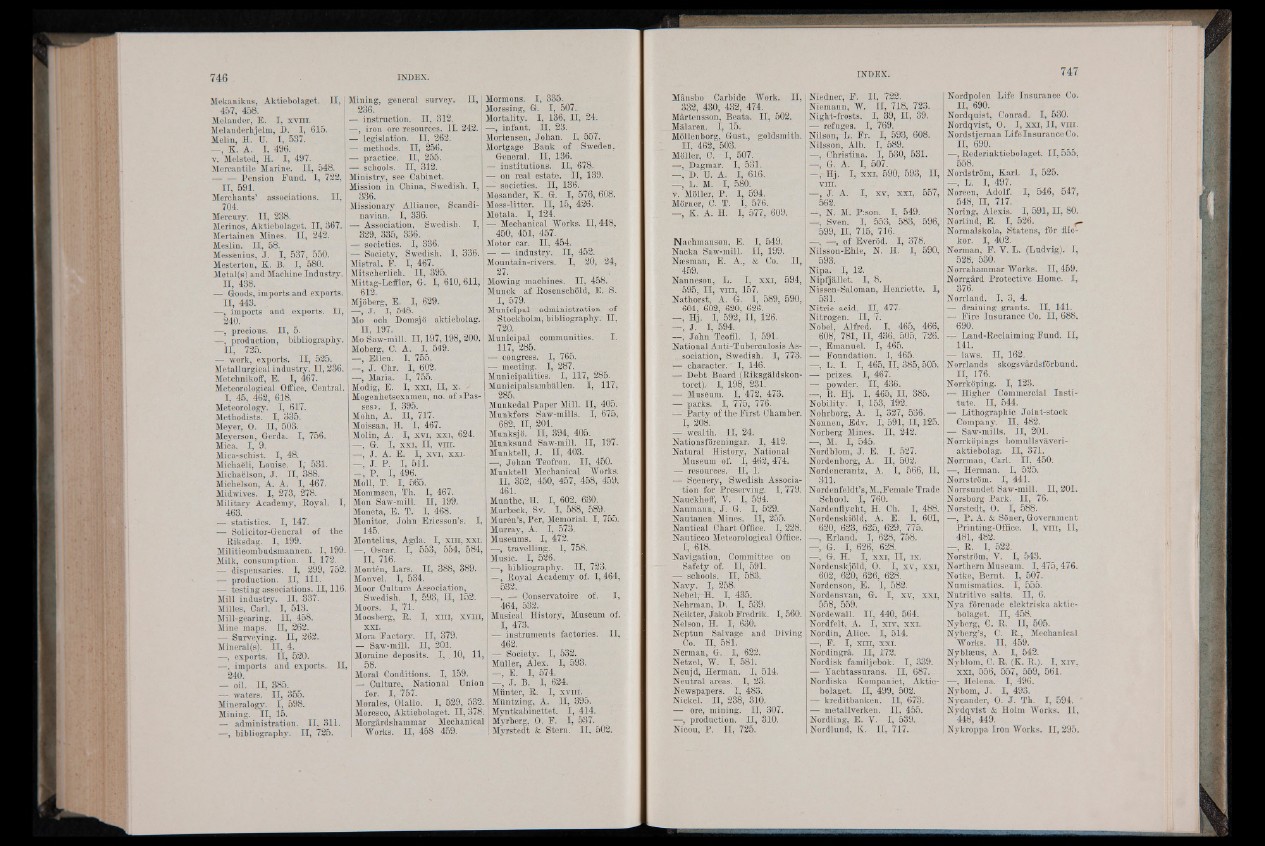 746
INDEX.
Mekanikus, Aktiebolaget. II,
457, 458.
Melander, E. I, XVIII.
Melanderhjelm, D. I, 615.
Melin, H. U. I, 537.
—, K. A. I, 496.
v. Melsted, H. I, 497.
Mercantile Marine. II, 548.
— — Pension Fund. I, 722,
II, 591.
Merchants' associations. II,
704.
Mercury. II, 238.
Merinos, Aktiebolaget. II, 367.
Mertainen Mines. II, 242.
Meslin. II, 58.
Messenius, J. I, 537, 550.
Mesterton, K. B. I, 580.
Metal(s) and Machine Industry.
II, 438.
— Goods, imports and exports.
II, 443.
—, imports and exports. II,
240.
—, precious. II, 5.
—, production, bibliography.
II, 725.
— work, exports. II, 525.
Metallurgical industry. II, 236.
Metchnikoff, E. I, 467.
Meteorological Office, Central.
I, 45, 462, 618.
Meteorology. I, 617.
Methodists. I, 335.
Meyer, O. II, 503.
Meyerson, Gerda. I, 756.
Mica. I, 9.
Mica-schist. I, 48.
Michaëli, Louise. I, 531.
Michaëlson, J. II, 388.
Michelson, A. A. I, 467.
Midwives. I, 273, 278.
Military Academy, Royal. I,
463.
— statistics. I, 147.
— Solicitor-General of the
Riksdag. I, 199.
Militieombudsmannen. I, 199.
Milk, consumption. I, 172.
— dispensaries. I, 299, 752.
— production. II, 111.
— testing associations. II, 116.
Mill industry. II, 337.
Milles, Carl. I, 513.
Mill-gearing. II, 458.
Mine maps. II, 262.
— Surveying. II, 262.
Mineral(s). II, 4.
—, exports. II, 520.
—, imports and exports. II,
240.
— oil. II, 385.
— waters. II, 355.
Mineralogy. I, 598.
Mining. II, 15.
— administration. II, 311.
—, bibliography. II, 725.
Mining, general survey. II,
236.
— instruction. II, 312.
—, iron ore resources. II. 242.
— legislation. II, 262.
— methods. II, 256.
— practice. II, 255.
— schools. II, 312.
Ministry, see Cabinet.
Mission in China, Swedish. I,
336.
Missionary Alliance, Scandi-
navian. I, 336.
— Association, Swedish. I,
329, 335, 336.
— societies. I, 336.
— Society, Swedish. I, 336.
Mistral, F. I, 467.
Mitscherlich. II, 395.
Mittag-Leffler, G. I, 610, 611,
612.
Mjöberg, E. I, 629.
—, J. I, 546.
Mo och Domsjö aktiebolag.
II, 197.
Mo Saw-mill. II, 197, 198, 200.
Moberg, C. A. I, 549.
—, Ellen. I, 755.
—, J. Chr. I, 602.
—, Maria. I, 755.
Modig, E. I, XXI, II, X.
Mogenhetsexamen, no. of »Pas-
ses». I, 395.
Mohn, A. II, 717.
Moissan, H. I, 467.
Molin, A. I, XVI, XXI, 624.
—, G. I, XXI, II, VIII.
—, J. A. E. I, XVI, XXI.
—, J. P. I, 511.
—, P. I, 496.
Moll, T. I, 565.
Mommsen, Th. I, 467.
Mon Saw-mill. II, 199.
Moneta, E. T. I, 468.
Monitor, John Ericsson's. I,
145.
Montelius, Agda. I, XIII, XXI.
—, Oscar. I, 553, 554, 584,
II, 716.
Montén, Lars. II, 388, 389.
Monvel. I, 534.
Moor Culture Association,
Swedish. I, 593, II, 152.
Moors. I, 71.
Moosberg, R. I, XIII, XVIII,
XXI.
Mora Factory. II, 379.
— Saw-mill. II, 201.
Moraine deposits. I, 10, 11,
58.
Moral Conditions. I, 159.
— Culture, National Union
for. I, 757.
Morales, Olallo. I, 529, 532.
Moresco, Aktiebolaget. II, 378.
Morgårdshammar Mechanical
Works. II, 458 459.
Mormons. I, 335.
Morssing, G. I, 507.
Mortality. I, 136, II, 24.
—, infant. II, 23.
Mortensen, Johan. I, 557.
Mortgage Bank of Sweden,
General. II, 136.
— institutions. II, 678.
— on real estate. II, 139.
— societies. II, 136.
Mosander, K. G. I, 576, 608.
Moss-litter. II, 15, 426.
Motala. I, 124.
— Mechanical Works. II, 448,
450, 451, 457.
Motor car. II, 454.
— — industry. II, 452.
Mountain-rivers. I, 20, 24,
27.
Mowing machines. II, 458.
Munck af Rosenschöld, E. S.
I, 579.
Municipal administration of
Stockholm, bibliography. II,
720.
Municipal communities. I.
117, 285.
— congress. I, 765.
— meeting. I, 287.
Municipalities. I, 117, 285.
Municipalsamhällen. I, 117,
285.
Munkedal Paper Mill. II, 405.
Munkfors Saw-mills. I, 675,
682, II, 201.
Munksjö. II, 394, 405.
Munksund Saw-mill. II, 197.
Munktell, J. II, 403.
—, Johan Teofron. II, 450.
Munktell Mechanical Works.
II, 352, 450, 457, 458, 459,
461.
Munthe, H. I, 602, 630.
Murbeck, Sv. I, 588, 589.
Murén's, Per, Memorial. I, 755.
Murray, A. I, 573.
Museums. I, 472.
—, travelling. I, 758.
Music. I, 526.
—, bibliography. II, 723.
—, Royal Academy of. I, 464,
532.
—, — Conservatoire of. I,
464, 532.
Musical History, Museum of.
I, 473.
— instruments factories. II,
462.
— Society. I, 532.
Müller, Alex. I, 593.
—, E. I, 574.
—, J. B. I, 624.
Münter, R. I, XVIII.
Müntzing, A. II, 395.
Myntkabinettet. I, 414.
Myrberg, O. F. I, 537.
Myrstedt & Stern. II, 502.
INDEX.
747
Månsbo Carbide Work. II,
332, 430, 432, 474.
Mårtensson, Beata. II, 502.
Mälaren. I, 15.
Möllenborg, Gust., goldsmith.
II, 462, 503.
Möller, C. I, 507.
—, Dagmar. I, 531.
—, D. U. A. I, 616.
—, L. M. I, 580.
v. Möller, P. I, 594.
Mörner, C. T. I, 576.
—, K. A. H. I, 577, 609.
Nachmanson, E. I, 549.
Nacka Saw-mill. II, 199.
Næsman, E. A., & Co. II,
459.
Nannesen, L. I, XXI, 594,
595, II, VIII, 157.
Nathorst, A. G. I, 589, 590,
601, 602, 620, 626.
—, Hj. I, 592, II, 126.
—, J. I, 594.
—, John Teofil. I, 591.
National Anti-Tuberculosis As-
sociation, Swedish. I, 773.
— character. I, 146.
— Debt Board (Riksgäldskon-
toret). I, 198, 231.
— Museum. I, 472, 473.
— parks. I, 775, 776.
— Party of the First Chamber.
I, 208.
— wealth. II, 24.
Nationsföreningar. I, 412.
Natural History, National
Museum of. I, 462, 474.
— resources. II, 1.
— Scenery, Swedish Associa-
tion for Preserving. I, 779.
Nauckhoff, V. I, 594.
Naumann, J. G. I, 529.
Nautanen Mines. II, 255.
Nautical Chart Office. I, 228.
Nautico Meteorological Office.
I, 618.
Navigation, Committee on
Safety of. II, 591.
— schools. II, 583.
Navy. I, 258.
Nebel, H. I, 435.
Nehrman, D. I, 539.
Neikter, Jakob Fredrik. I, 560.
Nelson, H. I, 630.
Neptun Salvage and Diving
Co. II, 581.
Nerman, G. I, 622.
Netzel, W. I, 581.
Neujd, Herman. I, 514.
Neutral areas. I, 23.
Newspapers. I, 483.
Nickel. II, 238, 310.
— ore, mining. II, 307.
—, production. II, 310.
Nicou, P. II, 725.
Niedner, F. II, 722.
Niemann, W. II, 718, 723.
Night-frosts. I, 39, II, 39.
— refuges. I, 769.
Nilson, L. Fr. I, 593, 608.
Nilsson, Alb. I, 589.
—, Christina. I, 530, 531.
—, G. A. I, 507.
—, Hj. I, XXI, 590, 593, II,
VIII.
—, J. A. I, XV, XXI, 557,
562.
—, N. M. P:son. I, 549.
—, Sven. I, 553, 583, 596,
599, II, 715, 716.
—, —, of Everöd. I, 378.
Nilsson-Ehle, N. H. I, 590,
593.
Nipa. I, 12.
Nipfjället. I, 8.
Nissen-Saloman, Henriette. I,
531.
Nitric acid. II, 477.
Nitrogen. II, 7.
Nobel, Alfred. I, 465, 466,
608, 781, II, 436, 505, 726.
—, Emanuel. I, 465.
— Foundation. I, 465.
—, L. I. I, 465, II, 385, 505.
— prizes. I, 467.
— powder. II, 436.
—, R. Hj. I, 465, II, 385.
Nobility. I, 153, 192.
Nohrborg, A. I, 327, 536.
Nonnen, Edv. I, 591, II, 125.
Norberg Mines. II, 242.
—, M. I, 545.
Nordblom, J. E. I, 527.
Nordenborg, A. II, 502.
Nordencrantz, A. I, 566, II,
311.
Nordenfeldt's, M., Female Trade
School. I, 760.
Nordenflycht, H. Ch. I, 488.
Nordenskiöld, A. E. I, 601,
620, 623, 625, 629, 775.
—, Erland. I, 628, 758.
—, G. I, 626, 628.
—, G. H. I, XXI, II, IX.
Nordenskjöld, O. I, XV, XXI,
602, 620, 626, 628.
Nordenson, E. I, 582.
Nordensvan, G. I, XV, XXI,
558, 559.
Nordewall. II, 440, 564.
Nordfelt, A. I, XIV, XXI.
Nordin, Alice. I, 514.
—, F. I, XIII, XXI.
Nordingrå. II, 172.
Nordisk familjebok. I, 339.
— Yachtassurans. II, 687.
Nordiska Kompaniet, Aktie-
bolaget. II, 499, 502.
— kreditbanken. II, 673.
— metallverken. II, 455.
Nordling, E. V. I, 539.
Nordlund, K. II, 717.
Nordpolen Life Insurance Co.
II, 690.
Nordquist, Conrad. I, 530.
Nordqvist, O. I, XXI, II, VIII.
Nordstjernan Life Insurance Co.
II, 690.
—, Rederiaktiebolaget. II, 555,
558.
Nordström, Karl. I, 525.
—, L. I, 497.
Noreen, Adolf. I, 546, 547,
548, II, 717.
Noring, Alexis. I, 591, II, 80.
Norlind, E. I, 526.
Normalskola, Statens, för flic-
kor. I, 402.
Norman, F. V. L. (Ludvig). I,
528, 530.
Norrahammar Works. II, 459.
Norrgård Protective Home. I,
376.
Norrland. I, 3, 4.
— draining grants. II, 141.
— Fire Insurance Co. II, 688,
690.
— Land-Reclaiming Fund. II,
141.
— laws. II, 162.
Norrlands skogsvårdsförbund.
II, 176.
Norrköping. I, 123.
— Higher Commercial Insti-
tute. II, 544.
— Lithographic Joint-stock
Company. II, 482.
— Saw-mills. II, 201.
Norrköpings bomullsväveri-
aktiebolag. II, 371.
Norrman, Carl. II, 450.
—, Herman. I, 525.
Norrström. I, 441.
Norrsundet Saw-mill. II, 201.
Norsborg Park. II, 76.
Norstedt, O. I, 588.
—, P. A. & Söner, Government
Printing-Office. I, VIII, II,
481, 482.
—, R. I, 522.
Norström, V. I, 543.
Northern Museum. I, 475, 476.
Notke, Bernt. I, 507.
Numismatics. I, 555.
Nutritive salts. II, 6.
Nya förenade elektriska aktie-
bolaget. II, 458.
Nyberg, C. R. II, 505.
Nyberg's, C. R., Mechanical
Works. II, 459.
Nyblæus, A. I, 542.
Nyblom, C. R. (K. R.). I, XIV.
XXI, 556, 557, 559, 561.
—, Helena. I, 496.
Nybom, J. I, 493.
Nycander, O. J. Th. I, 594.
Nydqvist & Holm Works. II,
448, 449.
Nykroppa Iron Works. II, 295.